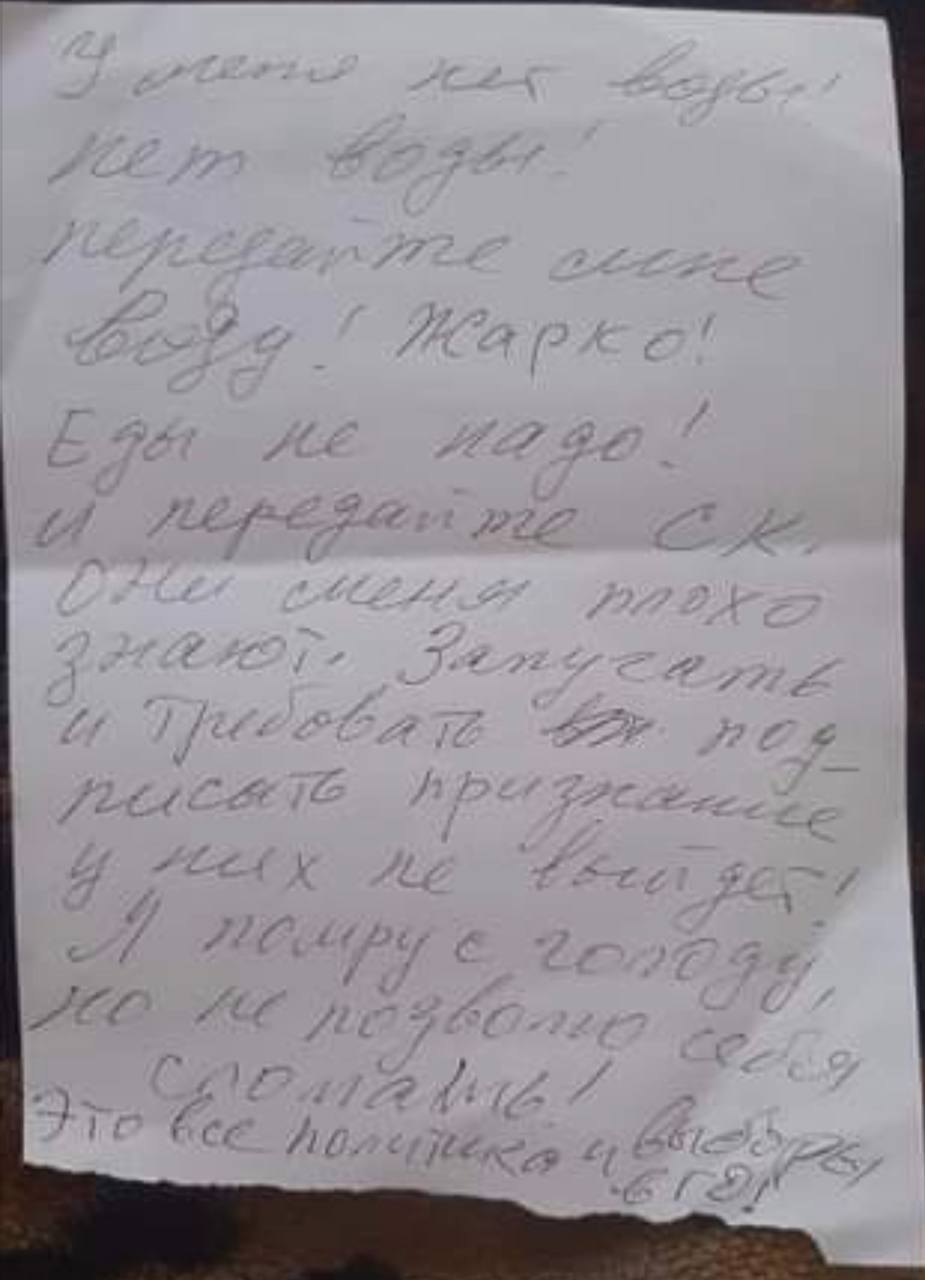 У меня нет воды!
нет воды!
передайте мне
воду! Жарко!
Еды не надо!
и передайте СК.
Они меня плохо
знают. Запугать
и требовать под_
писать признание
у них не выйдет!
Я помру с голоду,
но не позволю себя
сломать!
Это все политика и выборы
в ГД!